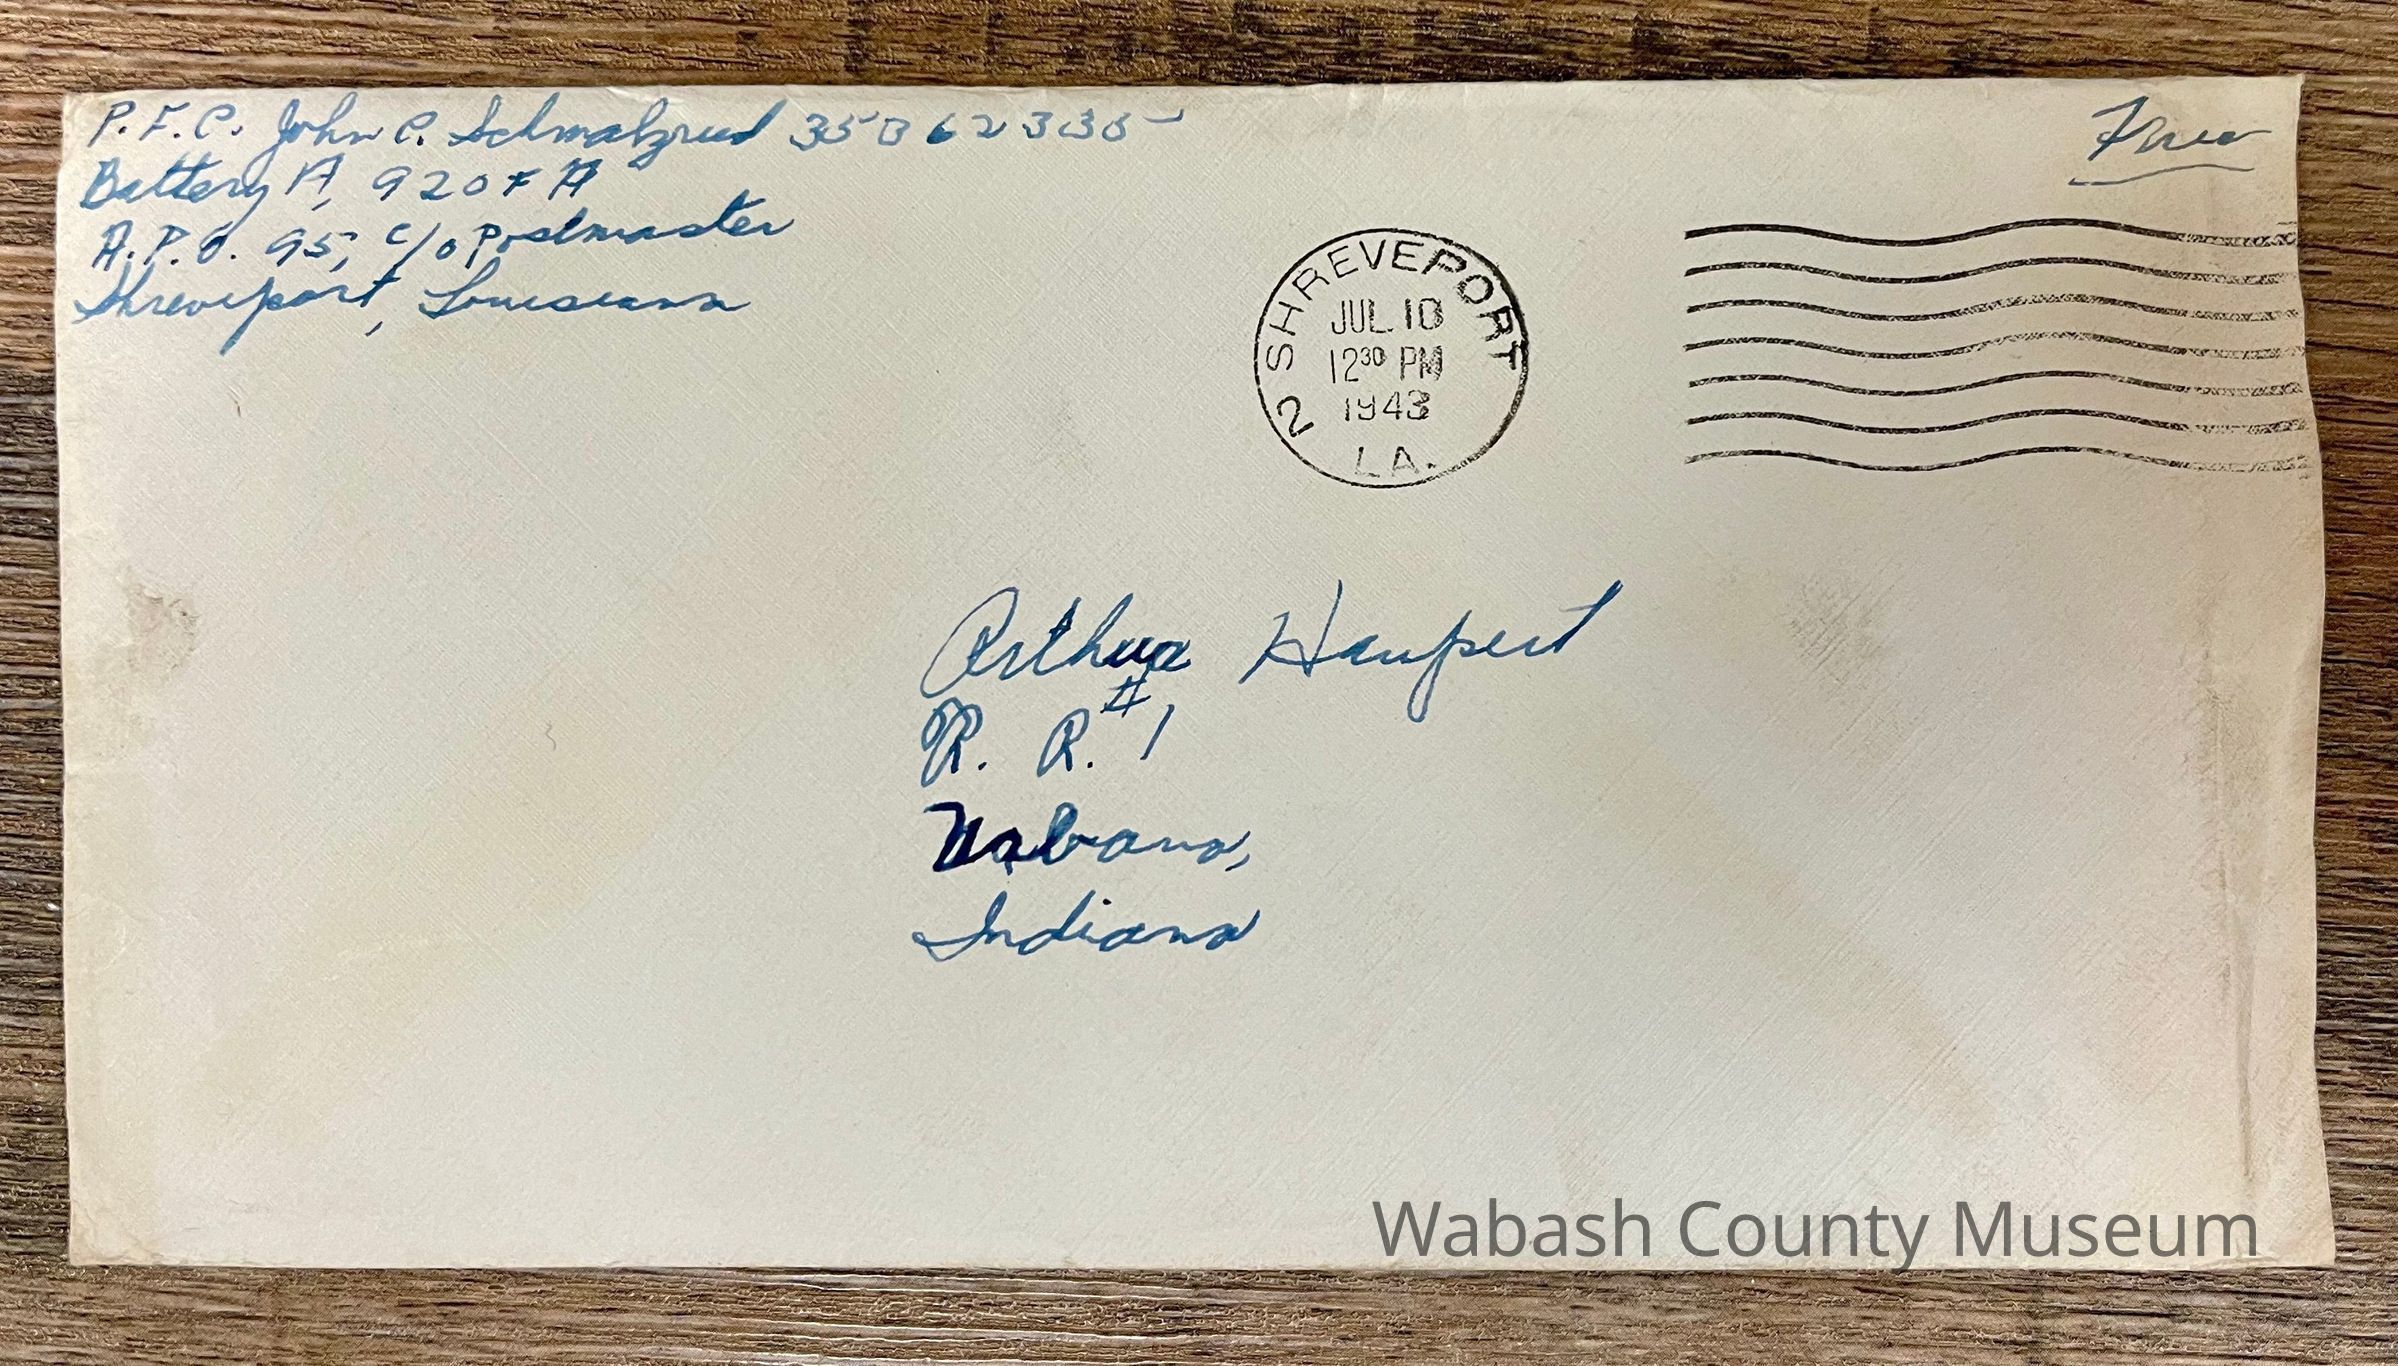 P.F.C. John C. Schmalzried
Battery A, 920 F A
A.P.O. 95, c/o Postmaster
Shreveport, Louisiana
Free
2 SHREVEPORT
JUL 10
12 30 PM
1943
LA.
Arthur Haupert
R. R. #1
Indiana
Wabash County Museum